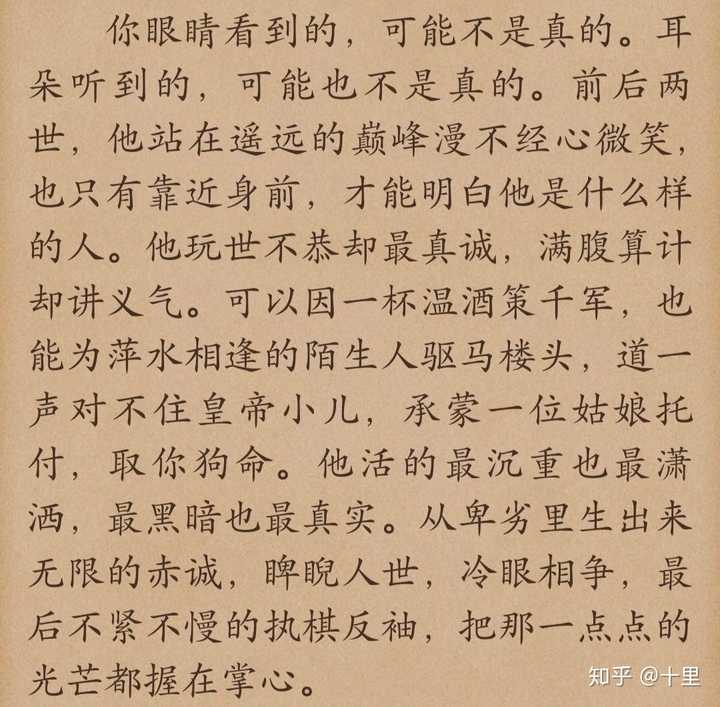 你眼睛看到的，可能不是真的。耳
朵听到的，可能也不是真的。前后两
世，他站在遥远的巅峰漫不经心微笑，
也只有靠近身前，才能明白他是什么样
的人。他玩世不恭却最真诚，满腹算计
却讲义气。可以因一杯温酒策千军，也
能为萍水相逢的陌生人驱马楼头，道一
声对不住皇帝小儿，承蒙一位姑娘托
付，取你狗命。他活的最沉重也最潇
洒，最黑暗也最真实。从卑劣里生出来
无限的赤诚，睥睨人世，冷眼相争，最
后不紧不慢的执棋反袖，把那一点点的
光芒都握在掌心。
知乎 @十里